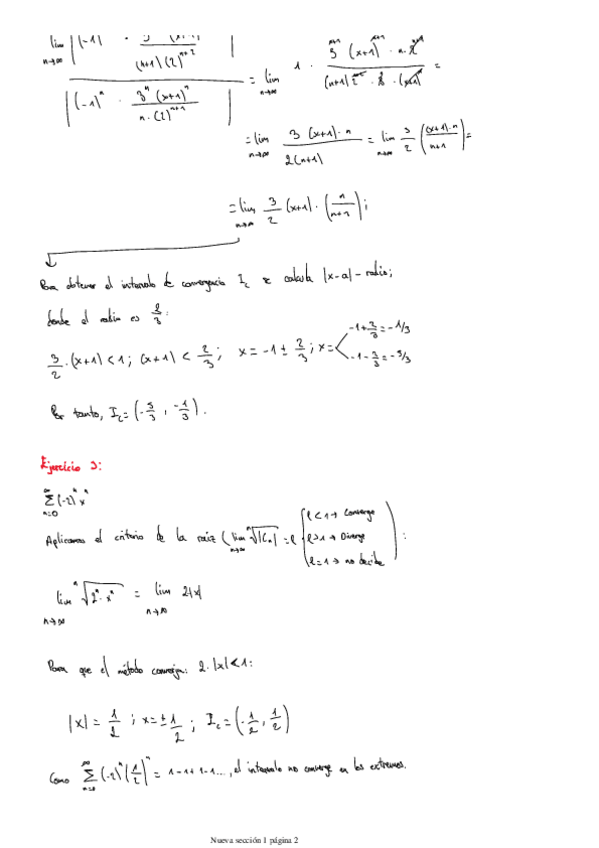 lim n→∞ |(-1) · 3 (x+1) / (n+1)(2)^{n+2}| / |(-1)^n · 3^n (x+1)^n / n·(2)^{n+1}| = lim n→∞ 1 · 3^{n+1} (x+1)^{n+1} · n · 2^{n+1} / (n+1) 2^{n+1} · 3^n · (x+1)^n =
= lim n→∞ 3 (x+1)·n / 2(n+1) = lim n→∞ 3/2 ((x+1)·n / n+1) =
= lim n→∞ 3/2 (x+1) · (n / n+1) ;
Para obtener el intervalo de convergencia I_c se calcula |x-a| - radio;
donde el radio es 2/3 :
3/2 · (x+1) < 1 ; (x+1) < 2/3 ; x = -1 ± 2/3 ; x = < -1+2/3 = -1/3
-1-2/3 = -5/3
Por tanto, I_c = (-5/3 , -1/3) .
Ejercicio 3:
∞ Σ n=0 (-2)^n x^n
Aplicamos el criterio de la raiz (lim n→∞ ^n√|C_n| = l { l<1 → Converge
l>1 → Diverge
l=1 → no decide ) :
lim n→∞ ^n√2^n · x^n = lim n→∞ 2|x|
Para que el método converja: 2·|x|<1:
|x| = 1/2 ; x = ± 1/2 ; I_c = (-1/2 , 1/2)
Como ∞ Σ n=0 (-2)^n (1/2)^n = 1-1+1-1..., el intervalo no converge en los extremos.
Nueva sección 1 página 2